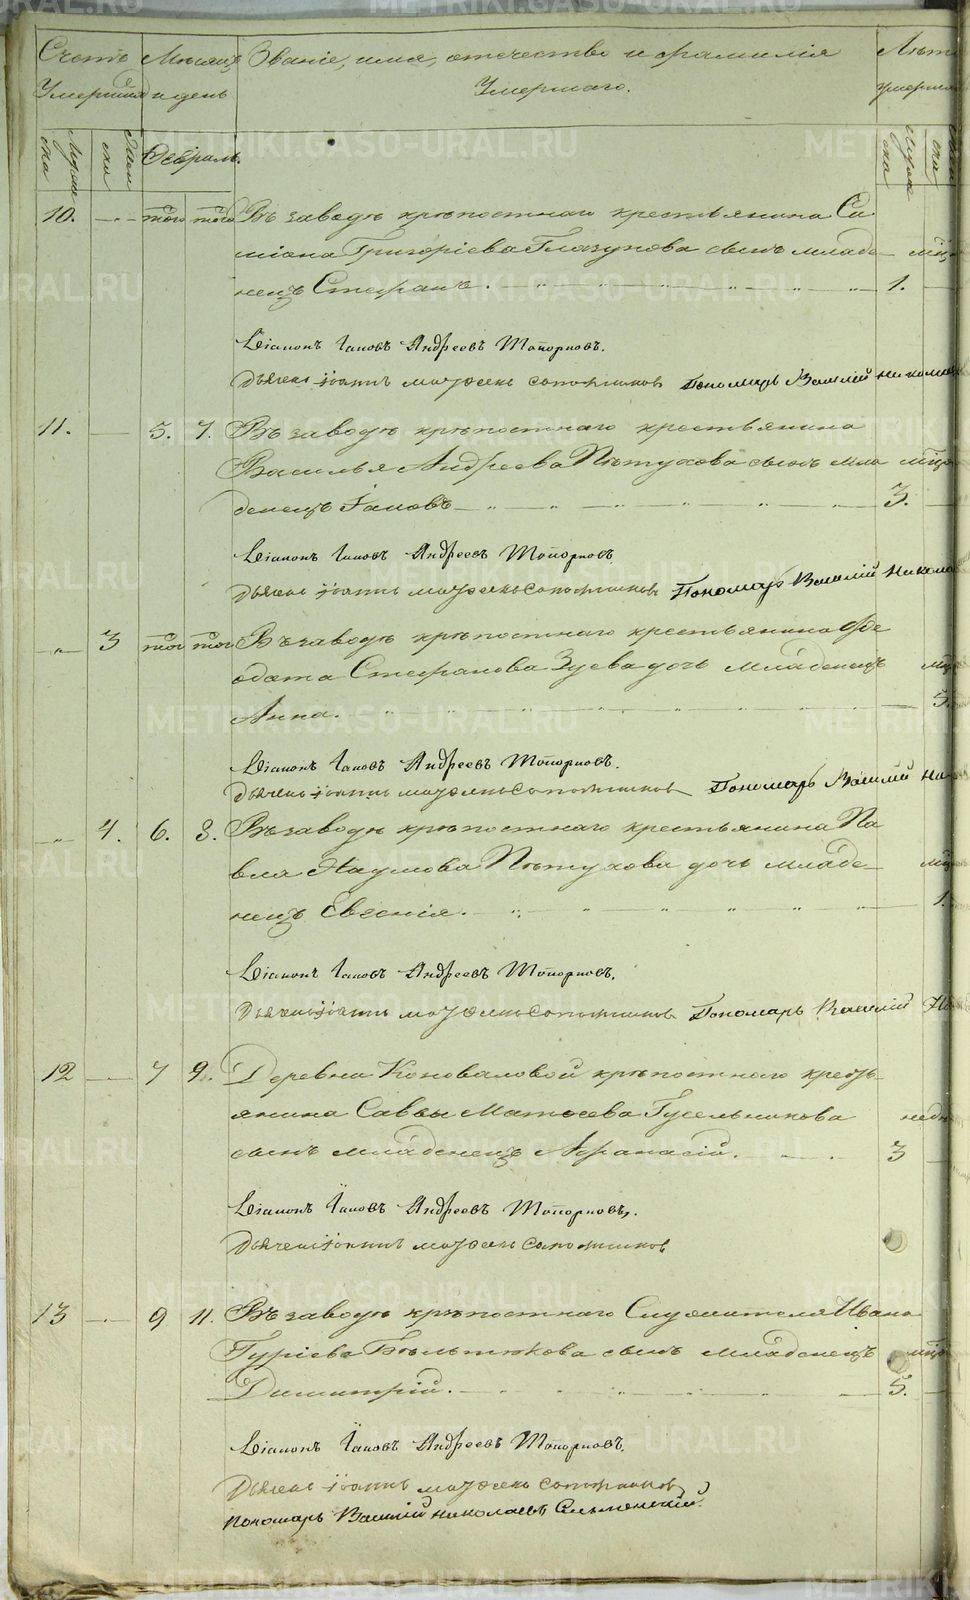 Счетъ Умершихъ
Мѣсяцъ и день
Званіе, имя, отчество и фамилія
Умершаго.
Лѣта
умерша
Мужеска
Женска
Февраль.
Мужеска
10. — того того Въ заводѣ крѣпостнаго крестьянина Са
Григоріева Глазунова сынъ младе-
нецъ Стефанъ. 1.
Діаконъ Іаковъ Андреевъ Топорковъ.
Дьячекъ Іоаннъ Сапожниковъ Пономарь Василій
11. — 5. 7. Въ заводѣ крѣпостнаго крестьянина
Василья Андреева Пѣтухова сынъ мла
денецъ Іаковъ 3.
Діаконъ Іаковъ Андреевъ Топорковъ
Дьячекъ Іоаннъ Сапожниковъ Пономарь Василій
" 3 того того Въ заводѣ крѣпостнаго крестьянина Фе
одота Стефанова Зуева дочь младенецъ
Анна. 5.
Діаконъ Іаковъ Андреевъ Топорковъ.
Дьячекъ Іоаннъ Сапожниковъ Пономарь Василій
" 4. 6. 8. Въ заводѣ крѣпостнаго крестьянина Па
вла Наумова Пѣтухова дочь младе-
нецъ Евгенія. 1.
Діаконъ Іаковъ Андреевъ Топорковъ.
Дьячекъ Іоаннъ Сапожниковъ Пономарь Василій
12 — 7 9. Деревни Коноваловой крѣпостнаго кресть-
янина Саввы Матѳеева Гусельникова
сынъ младенецъ Афанасій. 3
Діаконъ Іаковъ Андреевъ Топорковъ.
Дьячекъ Іоаннъ Сапожниковъ
13 — 9 11. Въ заводѣ крѣпостнаго Служителя Ивана
Гуріева Бѣльтюкова сынъ младенецъ
Димитрій. 5.
Діаконъ Іаковъ Андреевъ Топорковъ.
Дьячекъ Іоаннъ Сапожниковъ
Пономарь Василій Николаевъ
METRIKI.GASO-URAL.RU